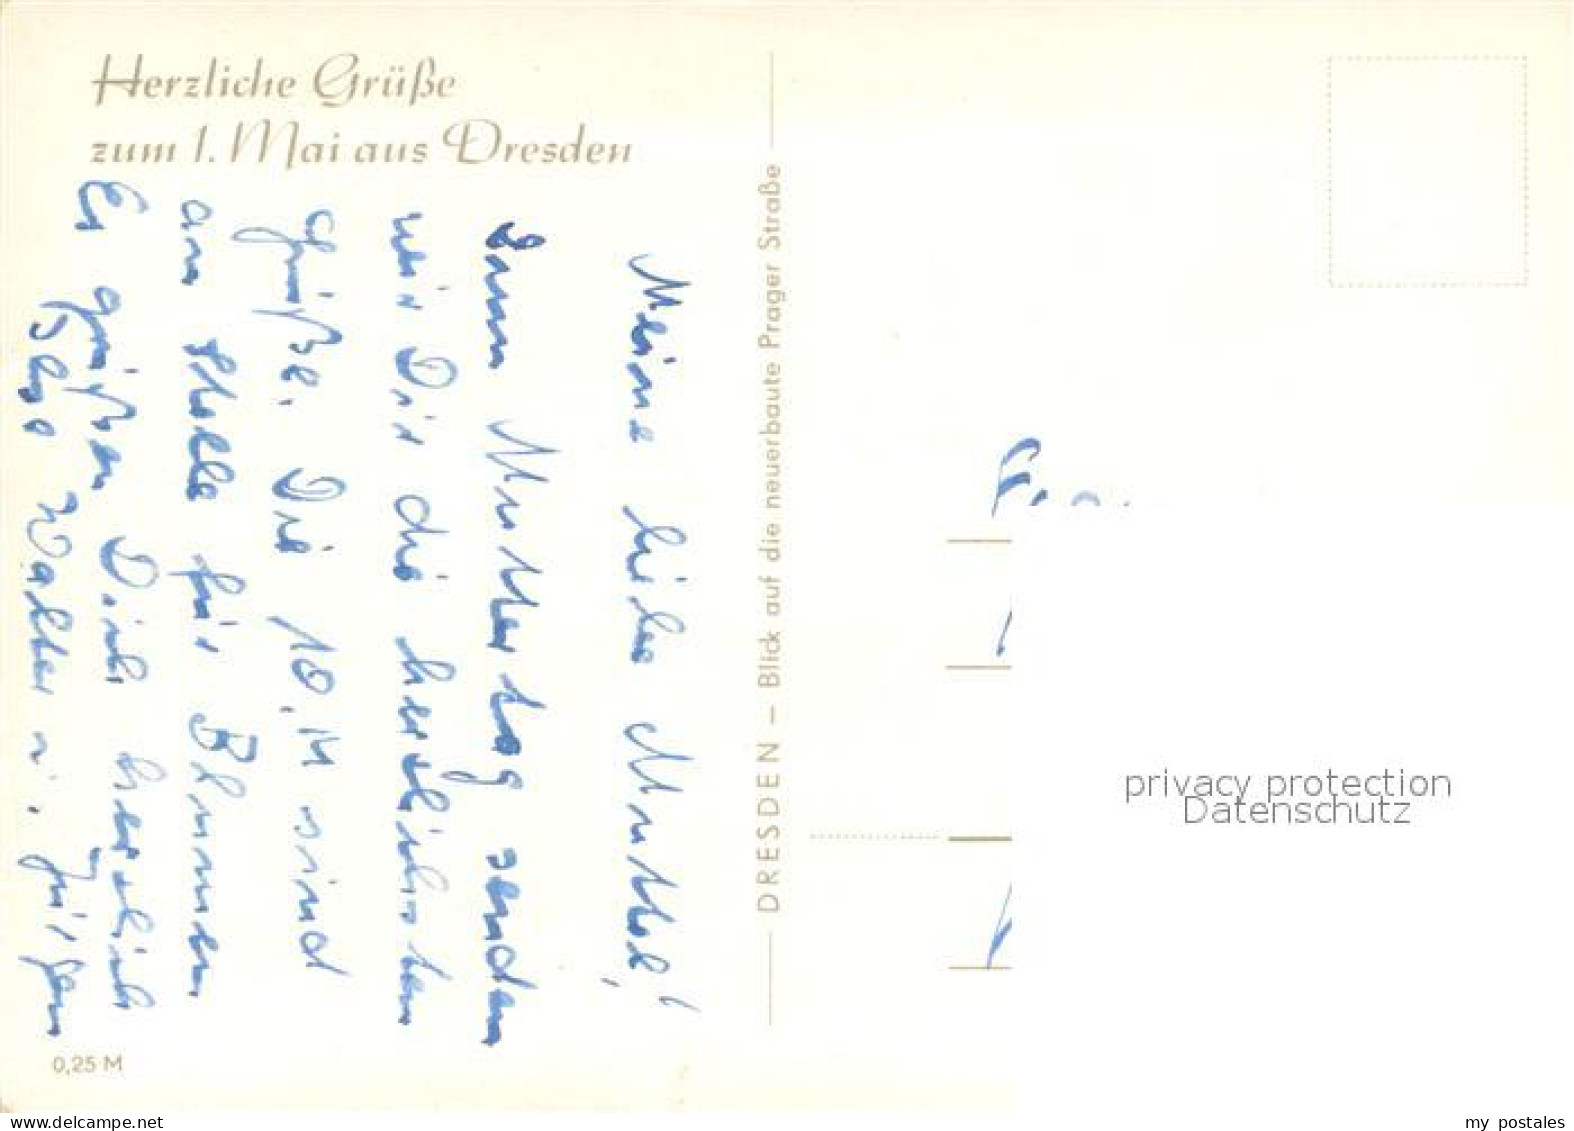 Herzliche Grüße
zum 1. Mai aus Dresden
Meine liebe Mutter!
Zum Muttertag senden
wir Dir die herzlichsten
Grüße. Die 10,M sind
an Stelle für Blumen
Es grüßen Dich herzlich
Walter u. Jürgen
0,25 M
DRESDEN – Blick auf die neuerbaute Prager Straße
privacy protection
Datenschutz
www.delcampe.net
my_postales